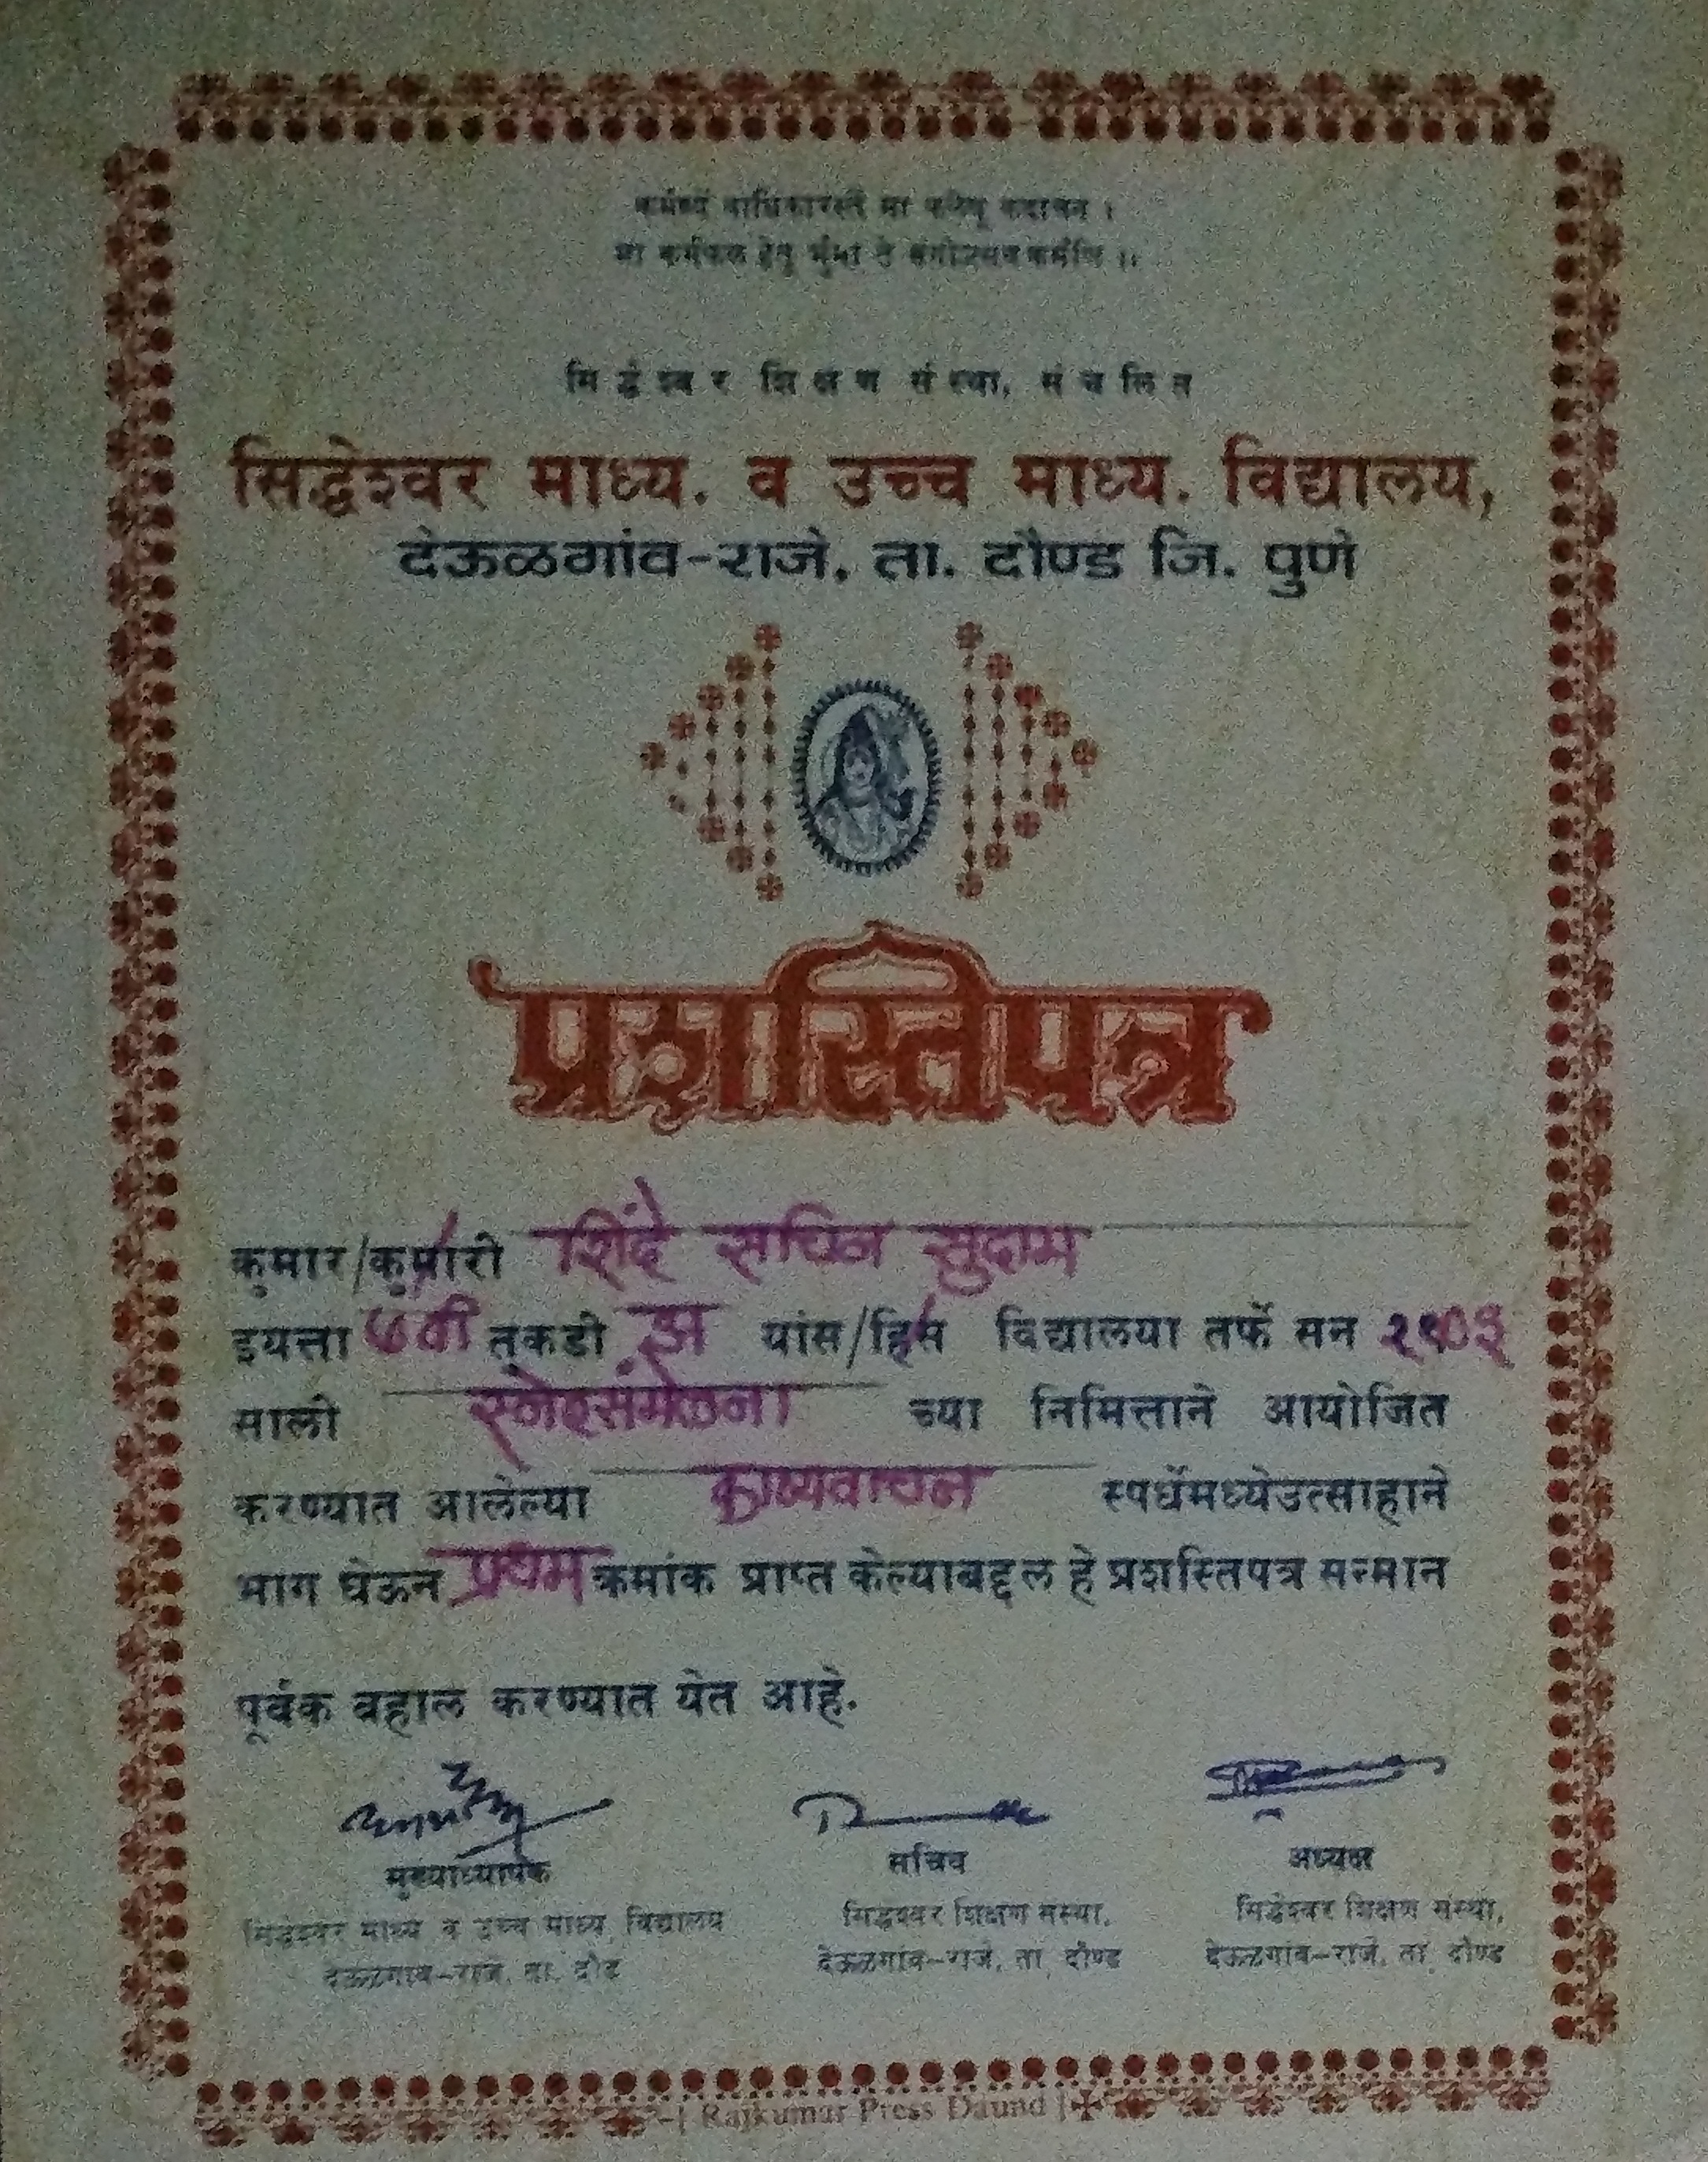 कर्मण्ये वाधिकारस्ते मा फलेषु कदाचन ।
मा कर्मफल हेतु र्भुर्मा ते संगोऽस्त्वकर्मणि ।।
सिद्धेश्वर शिक्षण संस्था, संचलित
सिद्धेश्वर माध्य. व उच्च माध्य. विद्यालय,
देऊळगांव-राजे, ता. दौण्ड जि. पुणे
प्रशस्तिपत्र
कुमार/कुमारी शिंदे सचिन सुदाम
इयत्ता ७वी तुकडी अ यांस/हिस विद्यालया तर्फे सन
साली स्नेहसंमेलना च्या निमित्ताने आयोजित
करण्यात आलेल्या काव्यवाचन स्पर्धेमध्येउत्साहाने
भाग घेऊन प्रथम क्रमांक प्राप्त केल्याबद्दल हे प्रशस्तिपत्र सन्मान
पूर्वक बहाल करण्यात येत आहे.
मुख्याध्यापक सचिव अध्यक्ष
सिद्धेश्वर माध्य व उच्च माध्य. विद्यालय सिद्धेश्वर शिक्षण संस्था, सिद्धेश्वर शिक्षण संस्था,
देऊळगांव-राजे, ता. दौंड देऊळगांव-राजे, ता. दौण्ड देऊळगांव-राजे, ता. दौण्ड
Rajkumar Press Daund